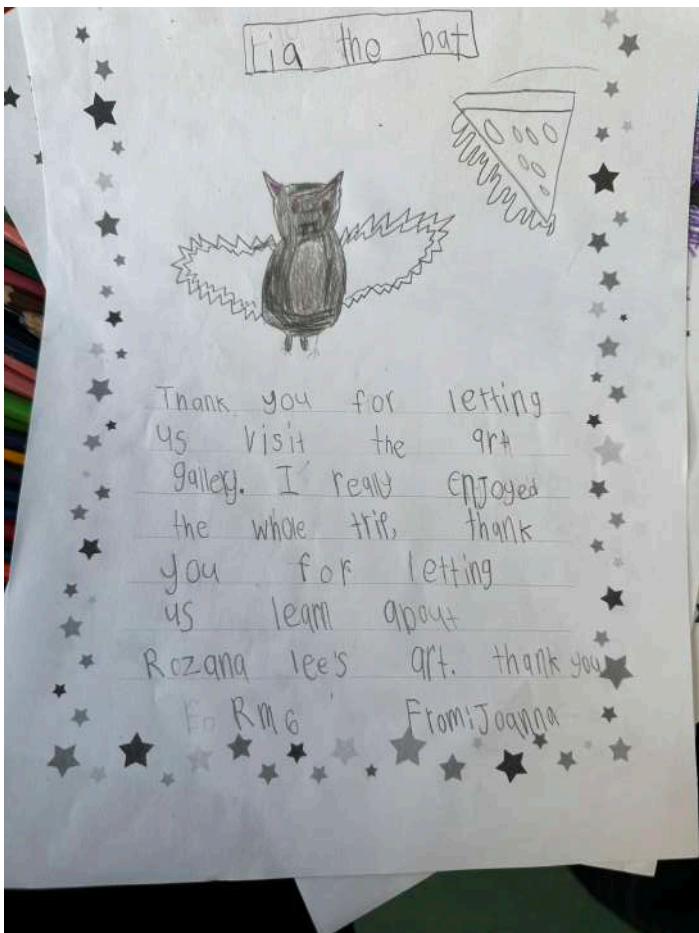 Lia the bat
Thank you for letting
us visit the art
gallery. I really enjoyed
the whole trip, thank
you for letting
us learn about
Rozana lee's art. thank you
Rm 6 From: Joanna